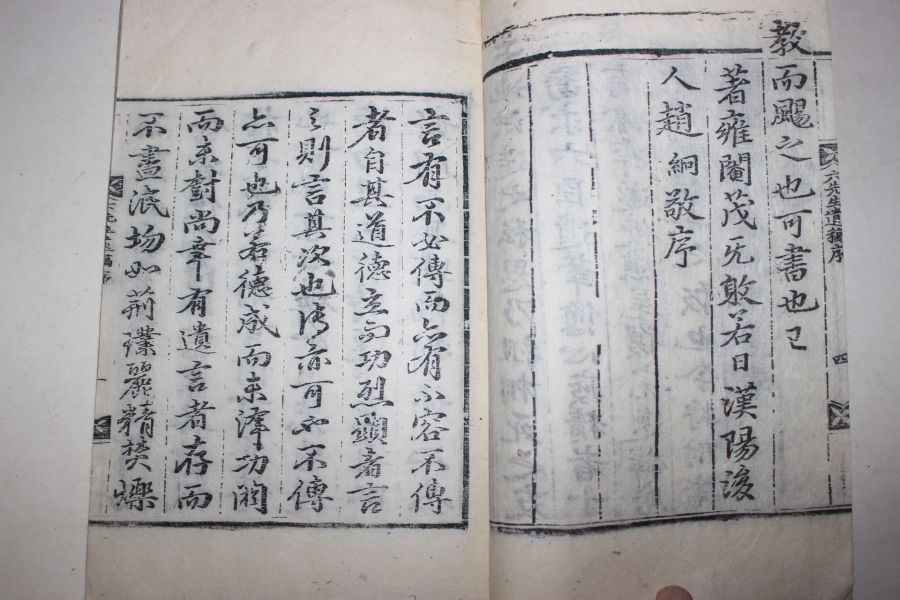 教而颺之也可書也已
著雍閹茂无射若日漢陽後
人趙絅敬序
六先生遺稿序
四
言有不必傳而亦有不容不傳
者自其道德立而功烈顯者言
之則言其次也傳亦可也不傳
亦可也乃若德咸而未澤功闕
而未對尚幸有遺言者存而
不盡泯場如荊璞麗精焚爍